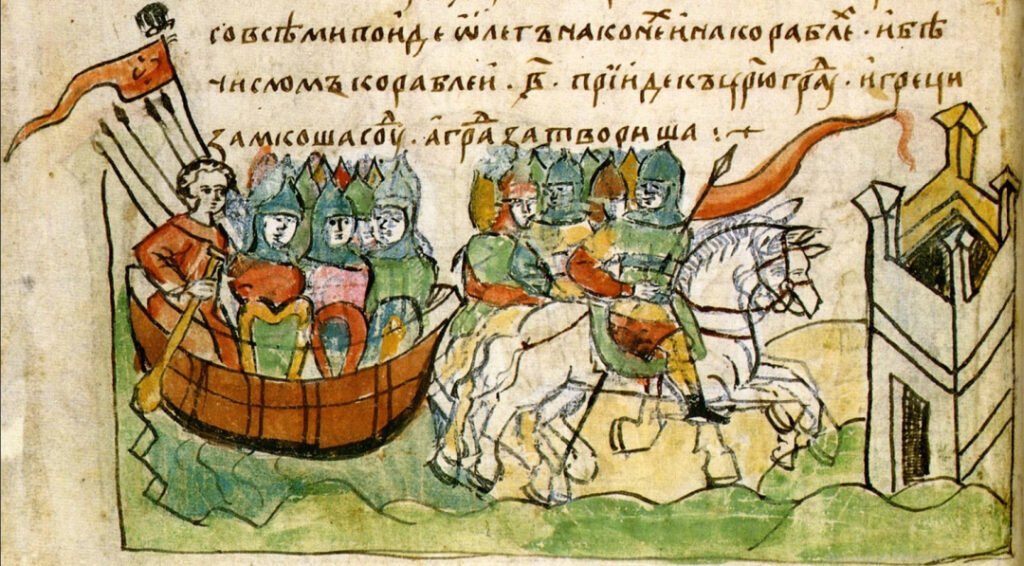 со всѣми поиде ѡлегъ на конеⷯ и на кораблеⷯ . и бѣ
числомъ кораблеи . в҃ . прїиде къ цр҃югра︮ⷣ︯у . и греци
замкоша соуⷣ . а граⷣ затвориша :+